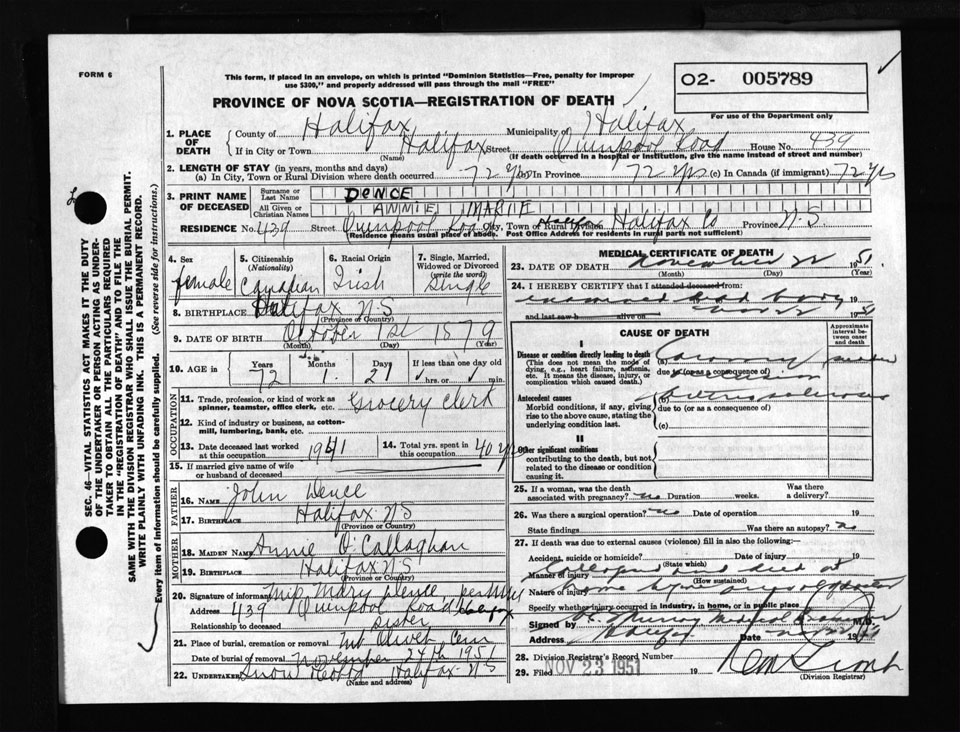 FORM 6
This form, if placed in an envelope, on which is printed "Dominion Statistics—Free, penalty for improper
use $300," and properly addressed will pass through the mail "FREE"
O2- 005789
For use of the Department only
PROVINCE OF NOVA SCOTIA—REGISTRATION OF DEATH
1. PLACE OF DEATH
County of Halifax Municipality of Halifax
If in City or Town Halifax Street Quinpool Road House No. 439
(Name) (If death occurred in a hospital or institution, give the name instead of street and number)
2. LENGTH OF STAY (in years, months and days)
(a) In City, Town or Rural Division where death occurred 72 yrs (b) In Province 72 yrs (c) In Canada (if immigrant) 72 yrs
3. PRINT NAME OF DECEASED
Surname or Last Name DENCE
All Given or Christian Names ANNIE MARIE
RESIDENCE No. 439 Street Quinpool Road City, Town or Rural Division Halifax Halifax Co Province N-S
(Residence means usual place of abode. Post Office Address for residents in rural parts not sufficient)
4. Sex female
5. Citizenship (Nationality) Canadian
6. Racial Origin Irish
7. Single, Married, Widowed or Divorced (write the word) Single
8. BIRTHPLACE Halifax N-S
(Province or Country)
9. DATE OF BIRTH October 1st 1879
(Month) (Day) (Year)
10. AGE in Years 72 Months 1 Days 21 If less than one day old hrs. or min.
OCCUPATION
11. Trade, profession, or kind of work as spinner, teamster, office clerk, etc. Grocery Clerk
12. Kind of industry or business, as cotton-mill, lumbering, bank, etc.
13. Date deceased last worked at this occupation 1941
14. Total yrs. spent in this occupation 40 yrs
15. If married give name of wife or husband of deceased
FATHER
16. Name John Dence
17. Birthplace Halifax N-S
(Province or Country)
MOTHER
18. Maiden Name Annie O'Callaghan
19. Birthplace Halifax N-S
(Province or Country)
20. Signature of informant Miss Mary Dence
Address 439 Quinpool Road Halifax
Relationship to deceased sister
21. Place of burial, cremation or removal Mt Olivet Cem
Date of burial or removal November 24th 1951
22. UNDERTAKER Snow Halifax N-S
(Name and address)
MEDICAL CERTIFICATE OF DEATH
23. DATE OF DEATH November 22 1951
(Month) (Day)
24. I HEREBY CERTIFY that I attended deceased from:
examined dead body 19
and last saw h alive on Nov 22 1951
CAUSE OF DEATH
Approximate interval between onset and death
I
Disease or condition directly leading to death
(This does not mean the mode of dying, e.g., heart failure, asthenia, etc. It means the disease, injury, or complication which caused death.)
(a) Coronary occlusion sudden
due to (or as a consequence of)
Antecedent causes
Morbid conditions, if any, giving rise to the above cause, stating the underlying condition last.
(b) Arteriosclerosis
due to (or as a consequence of)
(c)
II
Other significant conditions
contributing to the death, but not related to the disease or condition causing it.
25. If a woman, was the death associated with pregnancy? no Duration weeks. Was there a delivery?
26. Was there a surgical operation? no Date of operation 19
State findings Was there an autopsy? no
27. If death was due to external causes (violence) fill in also the following:—
Accident, suicide or homicide? Date of injury 19
(State which)
Manner of injury Collapsed and died at
(How sustained)
Nature of injury home
Specify whether injury occurred in industry, in home, or in public place
Signed by Murray Medical Examiner M.D.
Address Halifax Date 19
28. Division Registrar's Record Number
29. Filed NOV 23 1951 19
(Division Registrar)
SEC. 46—VITAL STATISTICS ACT MAKES IT THE DUTY
OF THE UNDERTAKER OR PERSON ACTING AS UNDER-
TAKER TO OBTAIN ALL THE PARTICULARS REQUIRED
IN THE "REGISTRATION OF DEATH" AND TO FILE THE
SAME WITH THE DIVISION REGISTRAR WHO SHALL ISSUE THE BURIAL PERMIT.
WRITE PLAINLY WITH UNFADING INK. THIS IS A PERMANENT RECORD.
Every item of information should be carefully supplied. (See reverse side for instructions.)